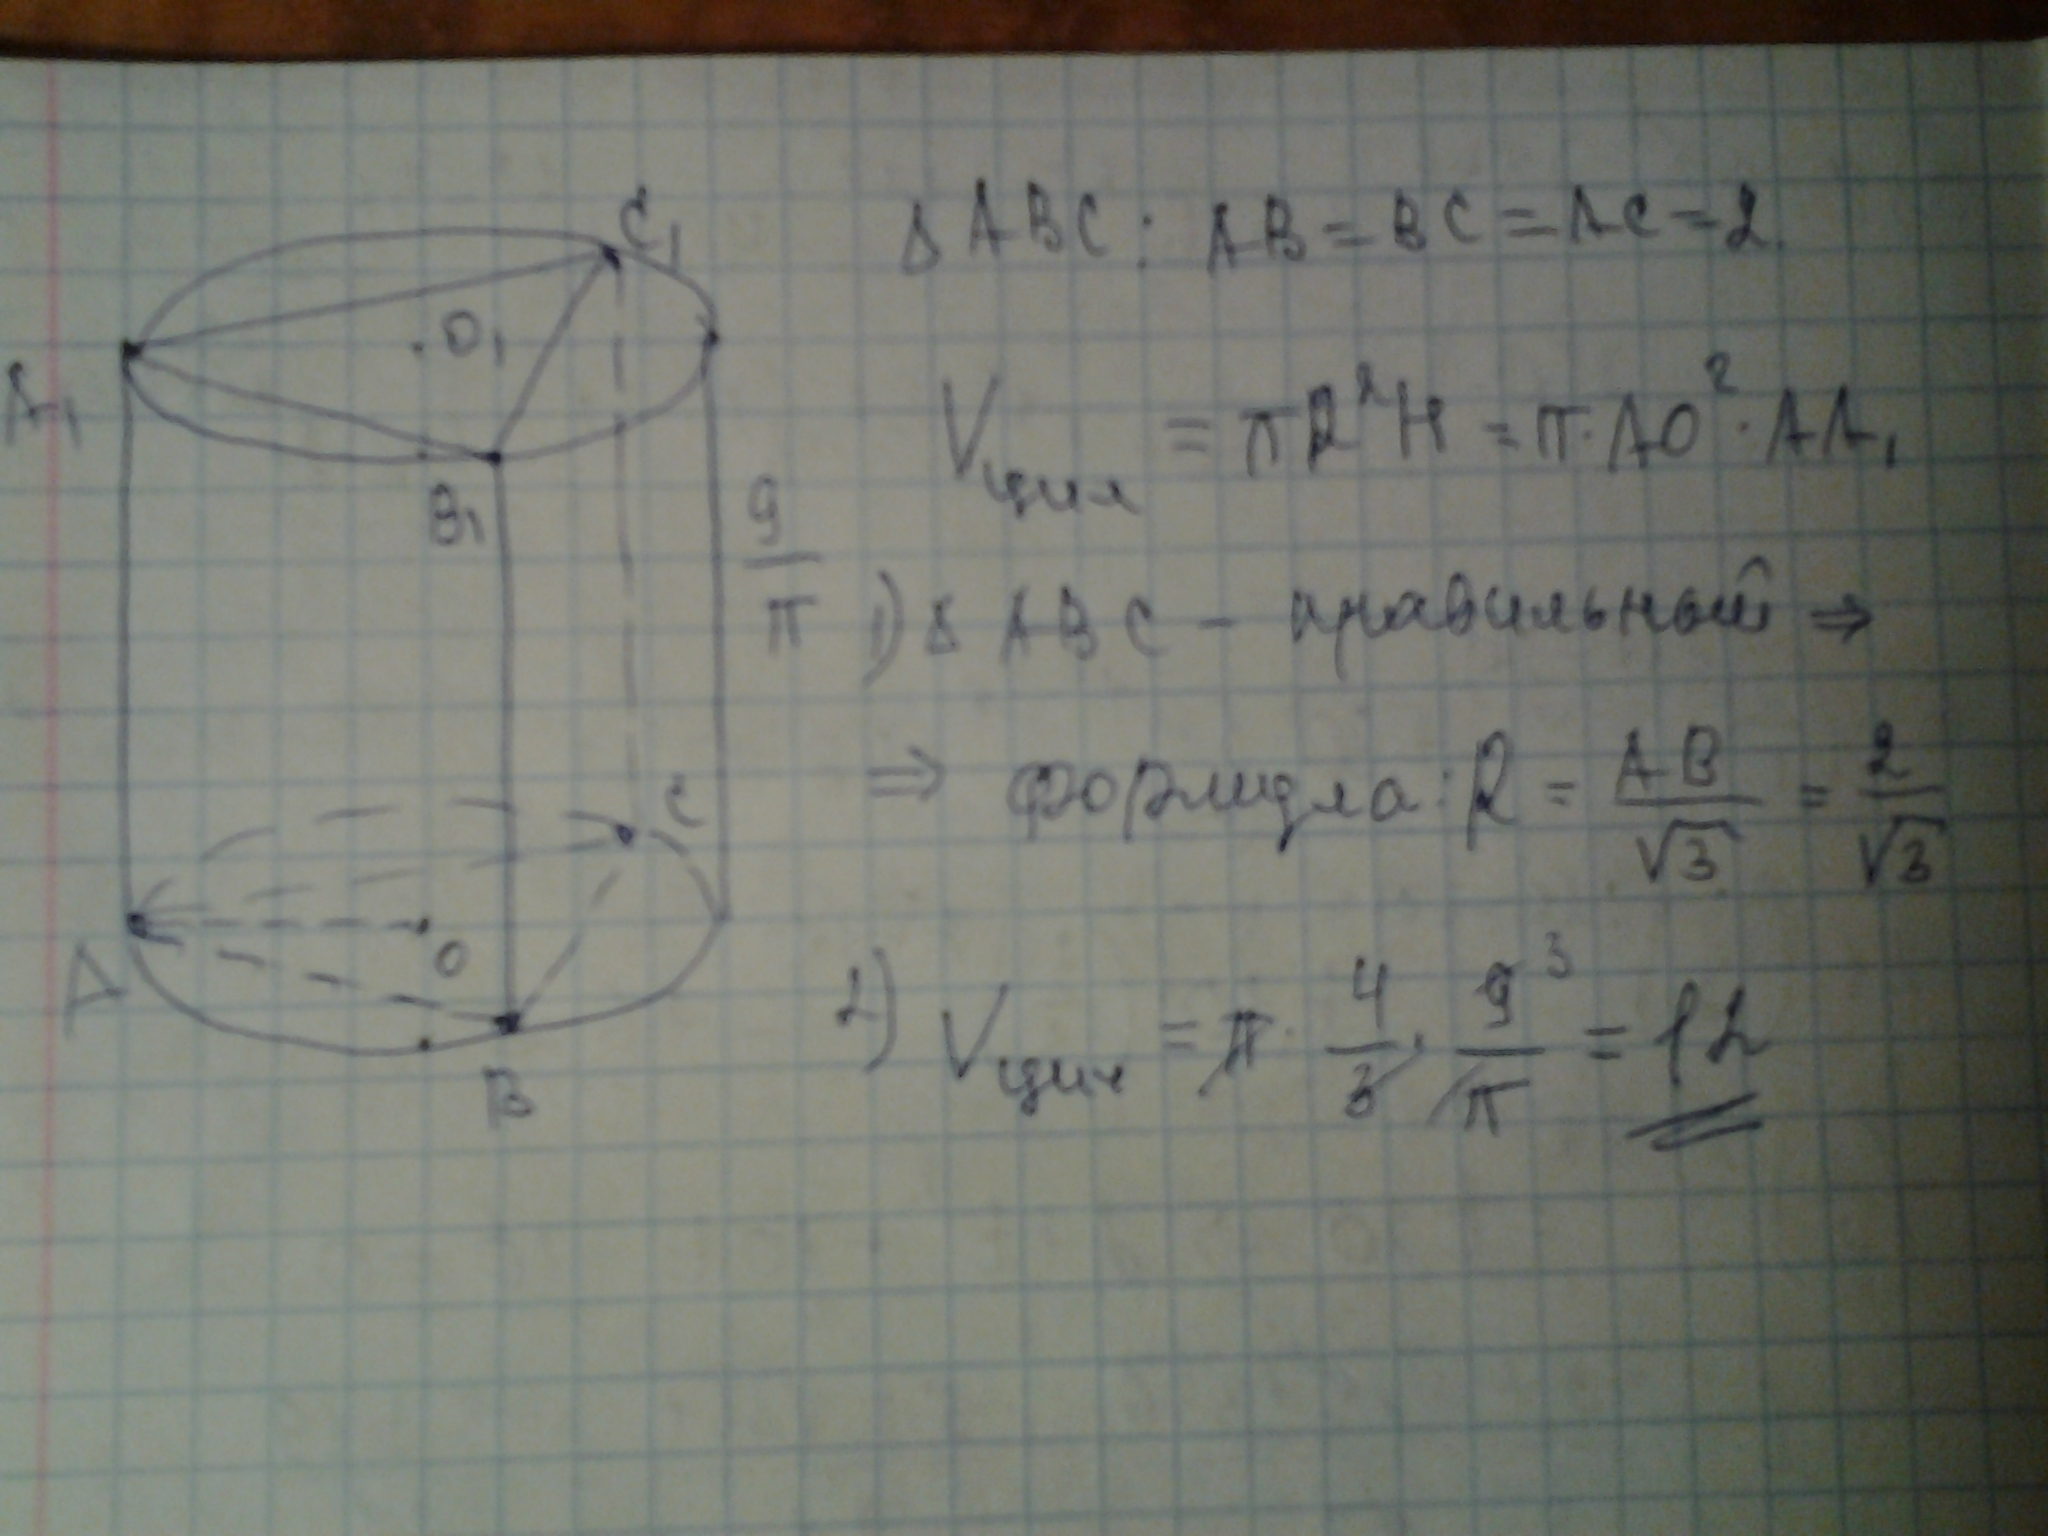 C₁
O₁
A₁
B₁
9/π
C
O
A
B
Δ ABC: AB = BC = AC = 2.
Vцил = πR²H = π·AO²·AA₁
1) Δ ABC – правильный ⇒
⇒ формула: R = AB/√3 = 2/√3
2) Vцил = π · 4/3 · 9³/π = 12